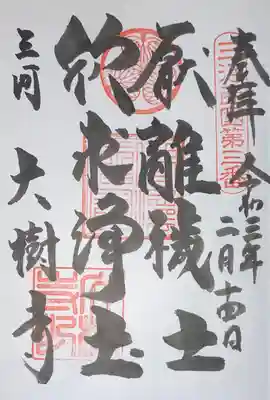 奉拝 令和三年
二月十四日
厭離穢土
欣求浄土
三河 大樹寺